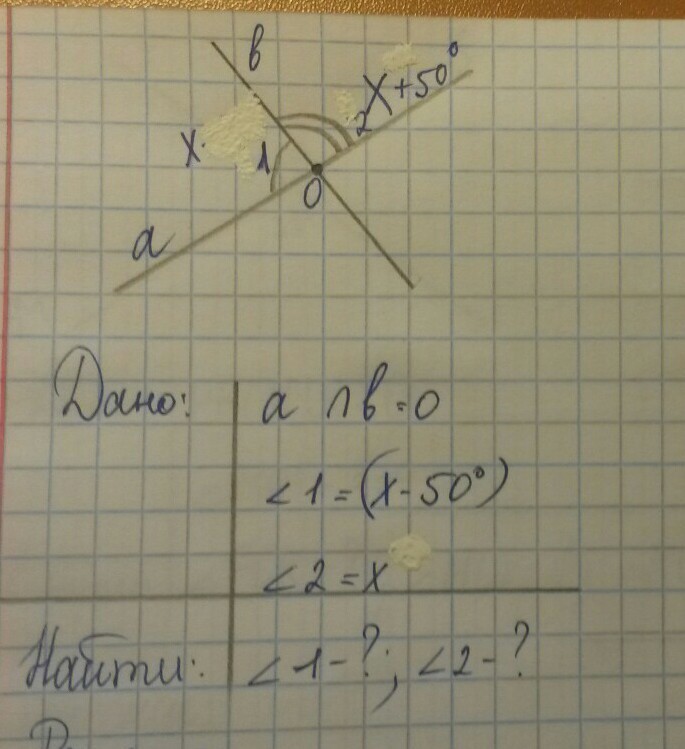 в
x+50°
x
1
2
O
a
Дано:
a ∩ b = O
∠1=(x-50°)
∠2=x
Найти: ∠1-?; ∠2-?